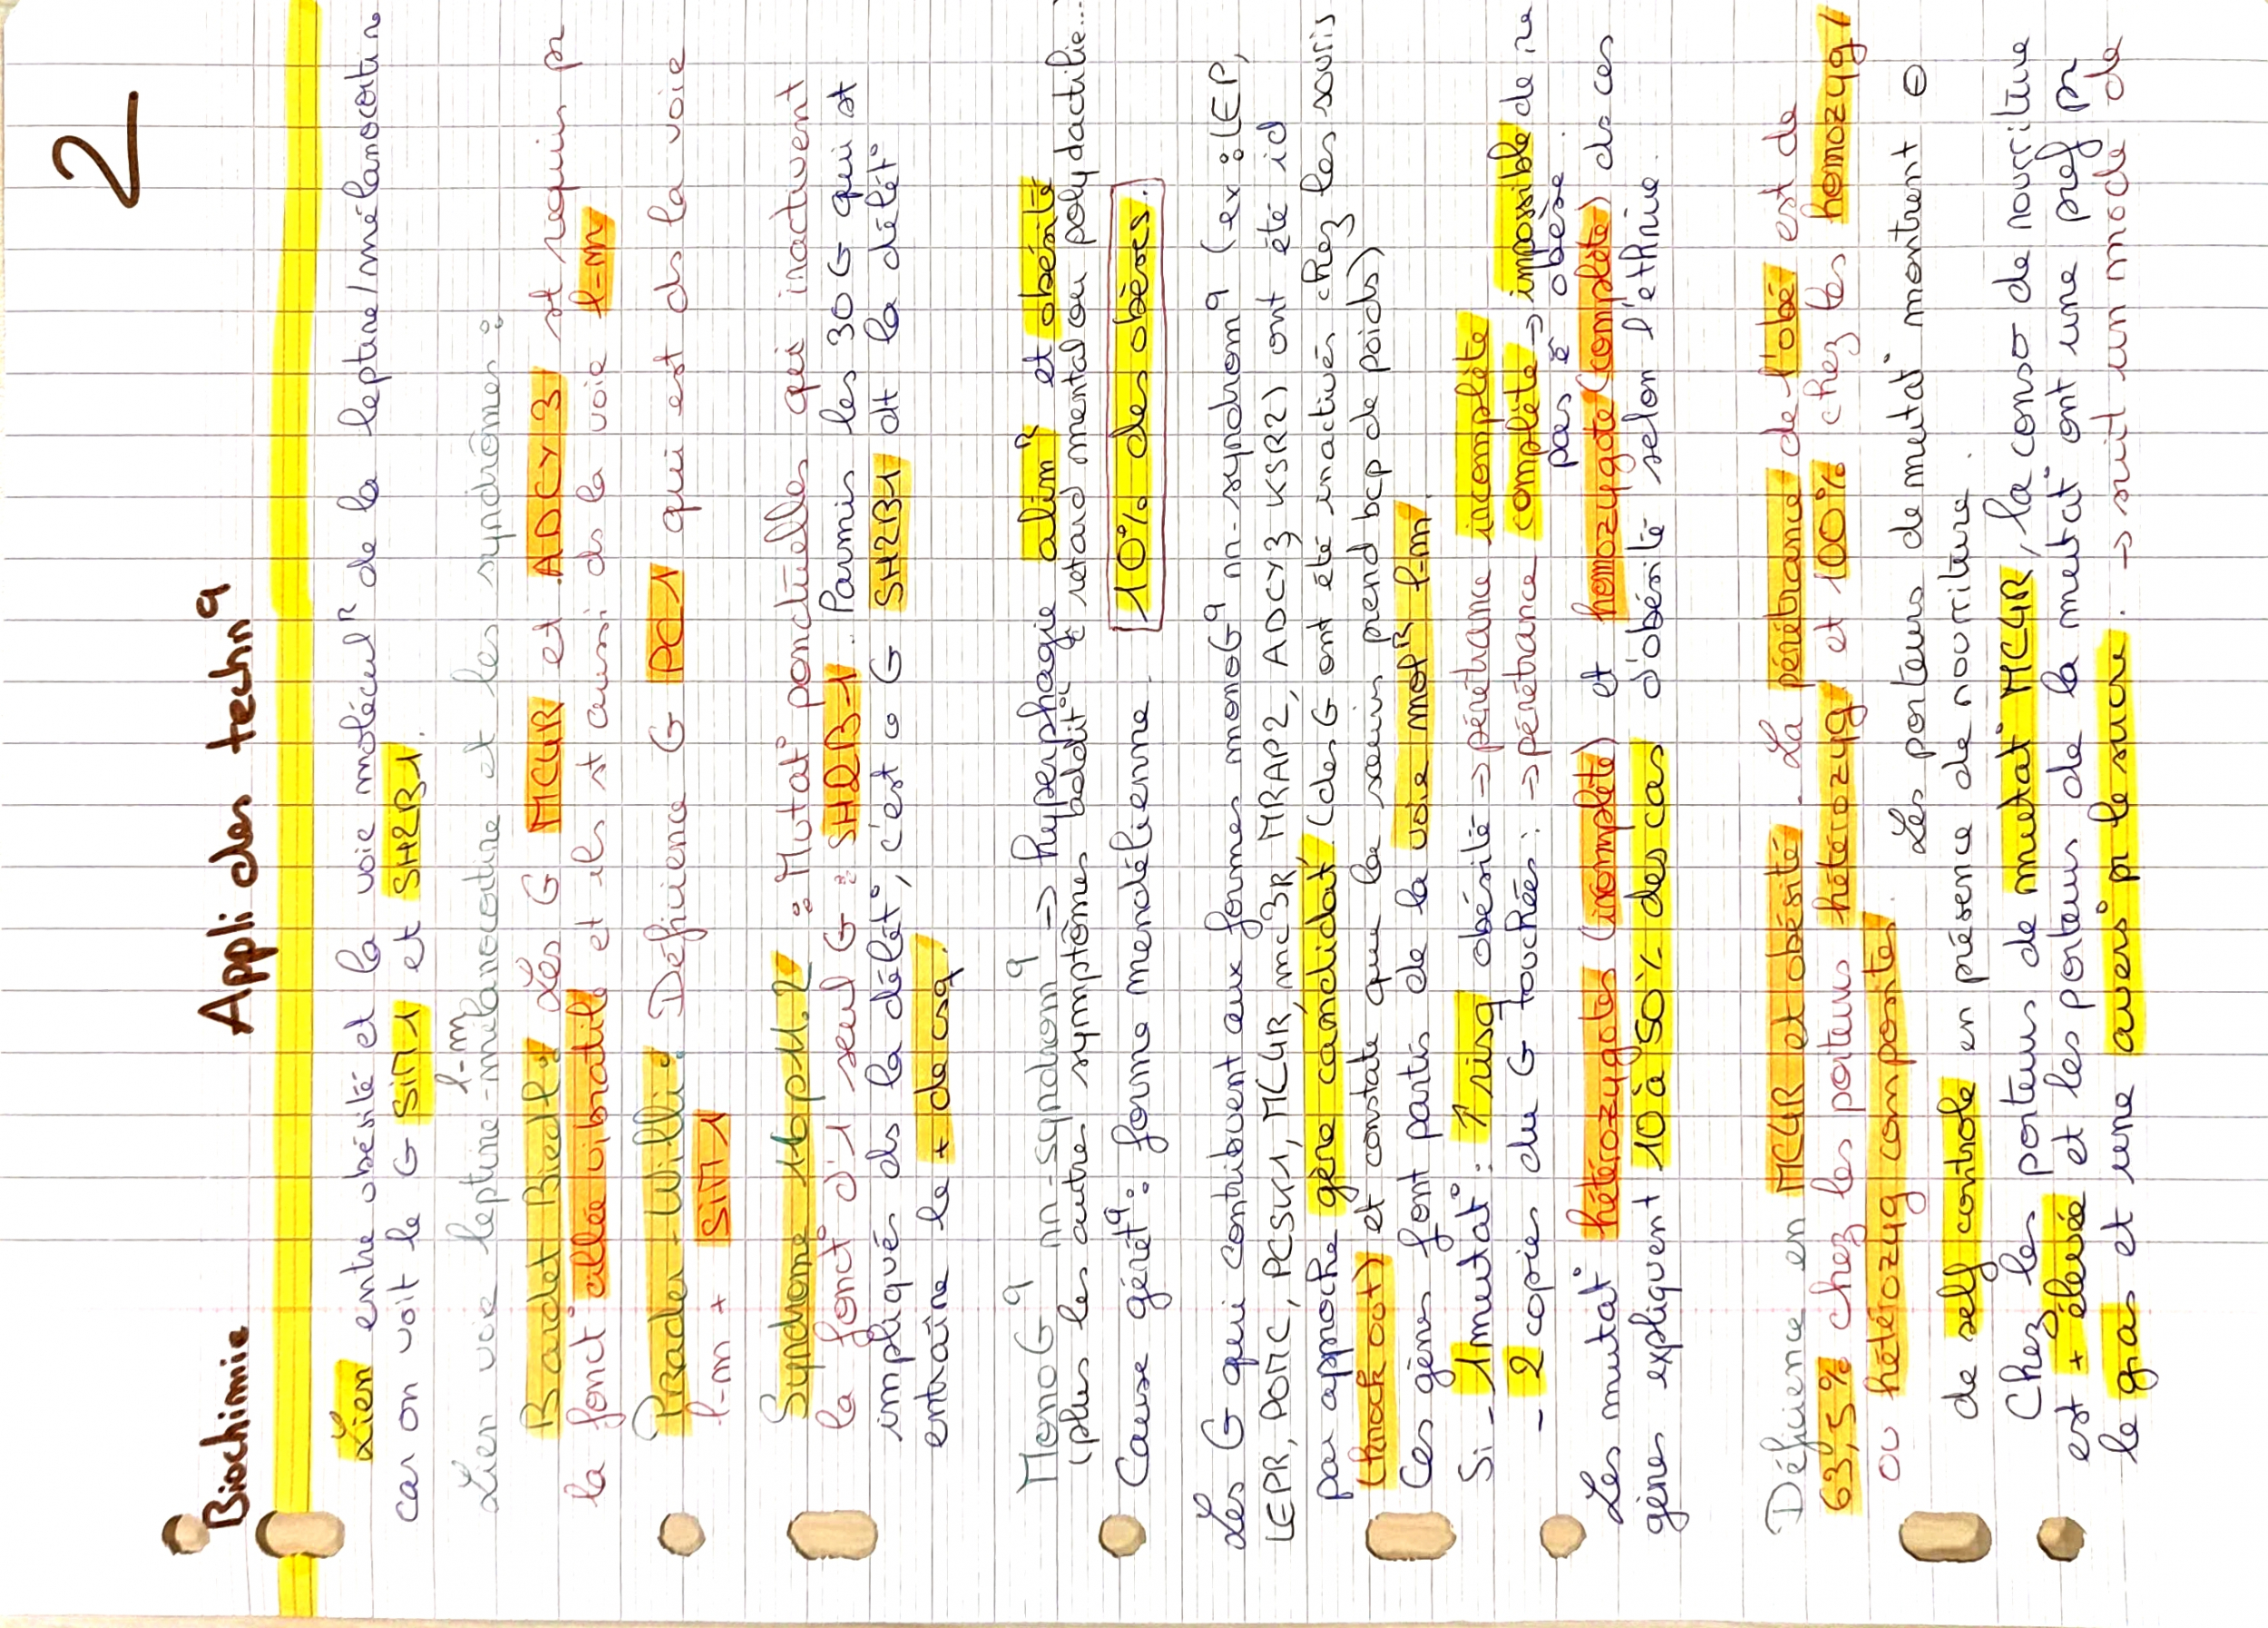 Biochimie
Appli des techn^q
2
Lien entre obésité et la voie molécul^R de la leptine/mélanocortine
car on voit le G SIM1 et SH2B1.
l-m
Lien voie leptine-mélanocortine et les syndrômes :
Bardet Biedl : Les G MC4R et ADCY3 st requis pr
la fonct° cillée vibratile et ils st aussi ds la voie l-m
Prader-Willi : Déficience G PC1 qui est ds la voie
l-m + SIM1
Syndrome 16p11.2 : Mutat° ponctuelles qui inactivent
la fonct° d'1 seul G : SH2B1. Parmis les 30 G qui st
impliqués ds la délét°, c'est G SH2B1 dt la délét°
entraîne le + de csq.
MonoG^q nn-syndrom^q => hyperphagie alim^R et obésité
(plus les autres symptômes addit° retard mental ou polydactilie...
Cause génét^q : forme mendélienne. 10% des obèses.
Les G qui contribuent aux formes monoG^q nn-syndrom^q (ex : LEP,
LEPR, POMC, PCSK1, MC4R, mc3R, MRAP2, ADCY3, KSR2) ont été id
par approche gène candidat (des G ont été inactivés chez les souris
(knock out) et constate que la souris prend bcp de poids)
Ces gènes font partis de la voie mol^R l-m.
Si - 1 mutat° : ↑ risq obésité => pénétrance incomplète
- 2 copies du G touchées : => pénétrance complète -> impossible de
pas ê obèse.
Les mutat° hétérozygotes (incomplète) et homozygote (complète) ds ces
gènes expliquent 10 à 50% des cas d'obésité selon l'éthnie.
Déficience en MC4R et obésité. La pénétrance de l'obé est de
63,5% chez les porteurs hétérozyg et 100% chez les homozyg/
ou hétérozyg composites.
Les porteurs de mutat° montrent ⊖
de self contrôle en présence de nourriture.
Chez les porteurs de mutat° MC4R, la conso de nourriture
est + élevée et les porteurs de la mutat° ont une pref pr
le gras et une avers° pr le sucre. -> suit un mode de